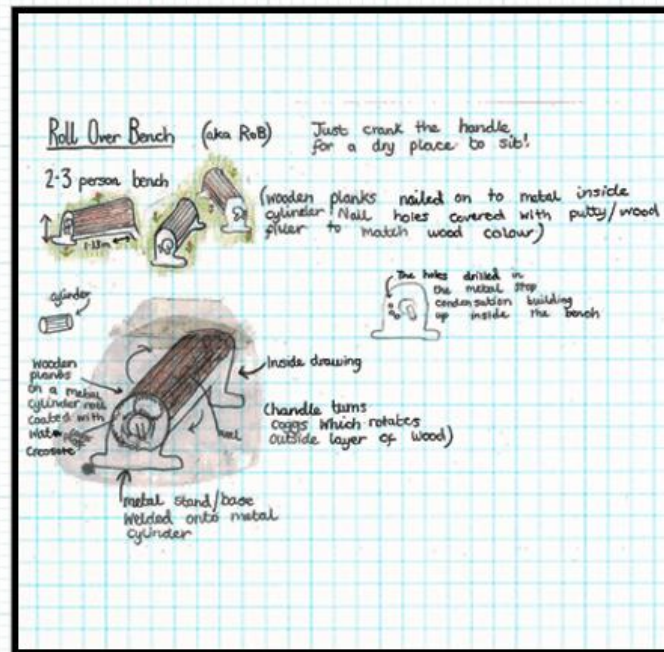 Roll Over Bench (aka RoB)
Just crank the handle
for a dry place to sit!
2-3 person bench
(wooden planks nailed on to metal inside
cylinder. Nail holes covered with putty/wood
filler to match wood colour)
cylinder
The holes drilled in
the metal stop
condensation building
up inside the bench
Wooden
planks
on a metal
cylinder roll
coated with
Creosote
Inside drawing
(handle turns
coggs which rotates
outside layer of wood)
metal stand/base
welded onto metal
cylinder